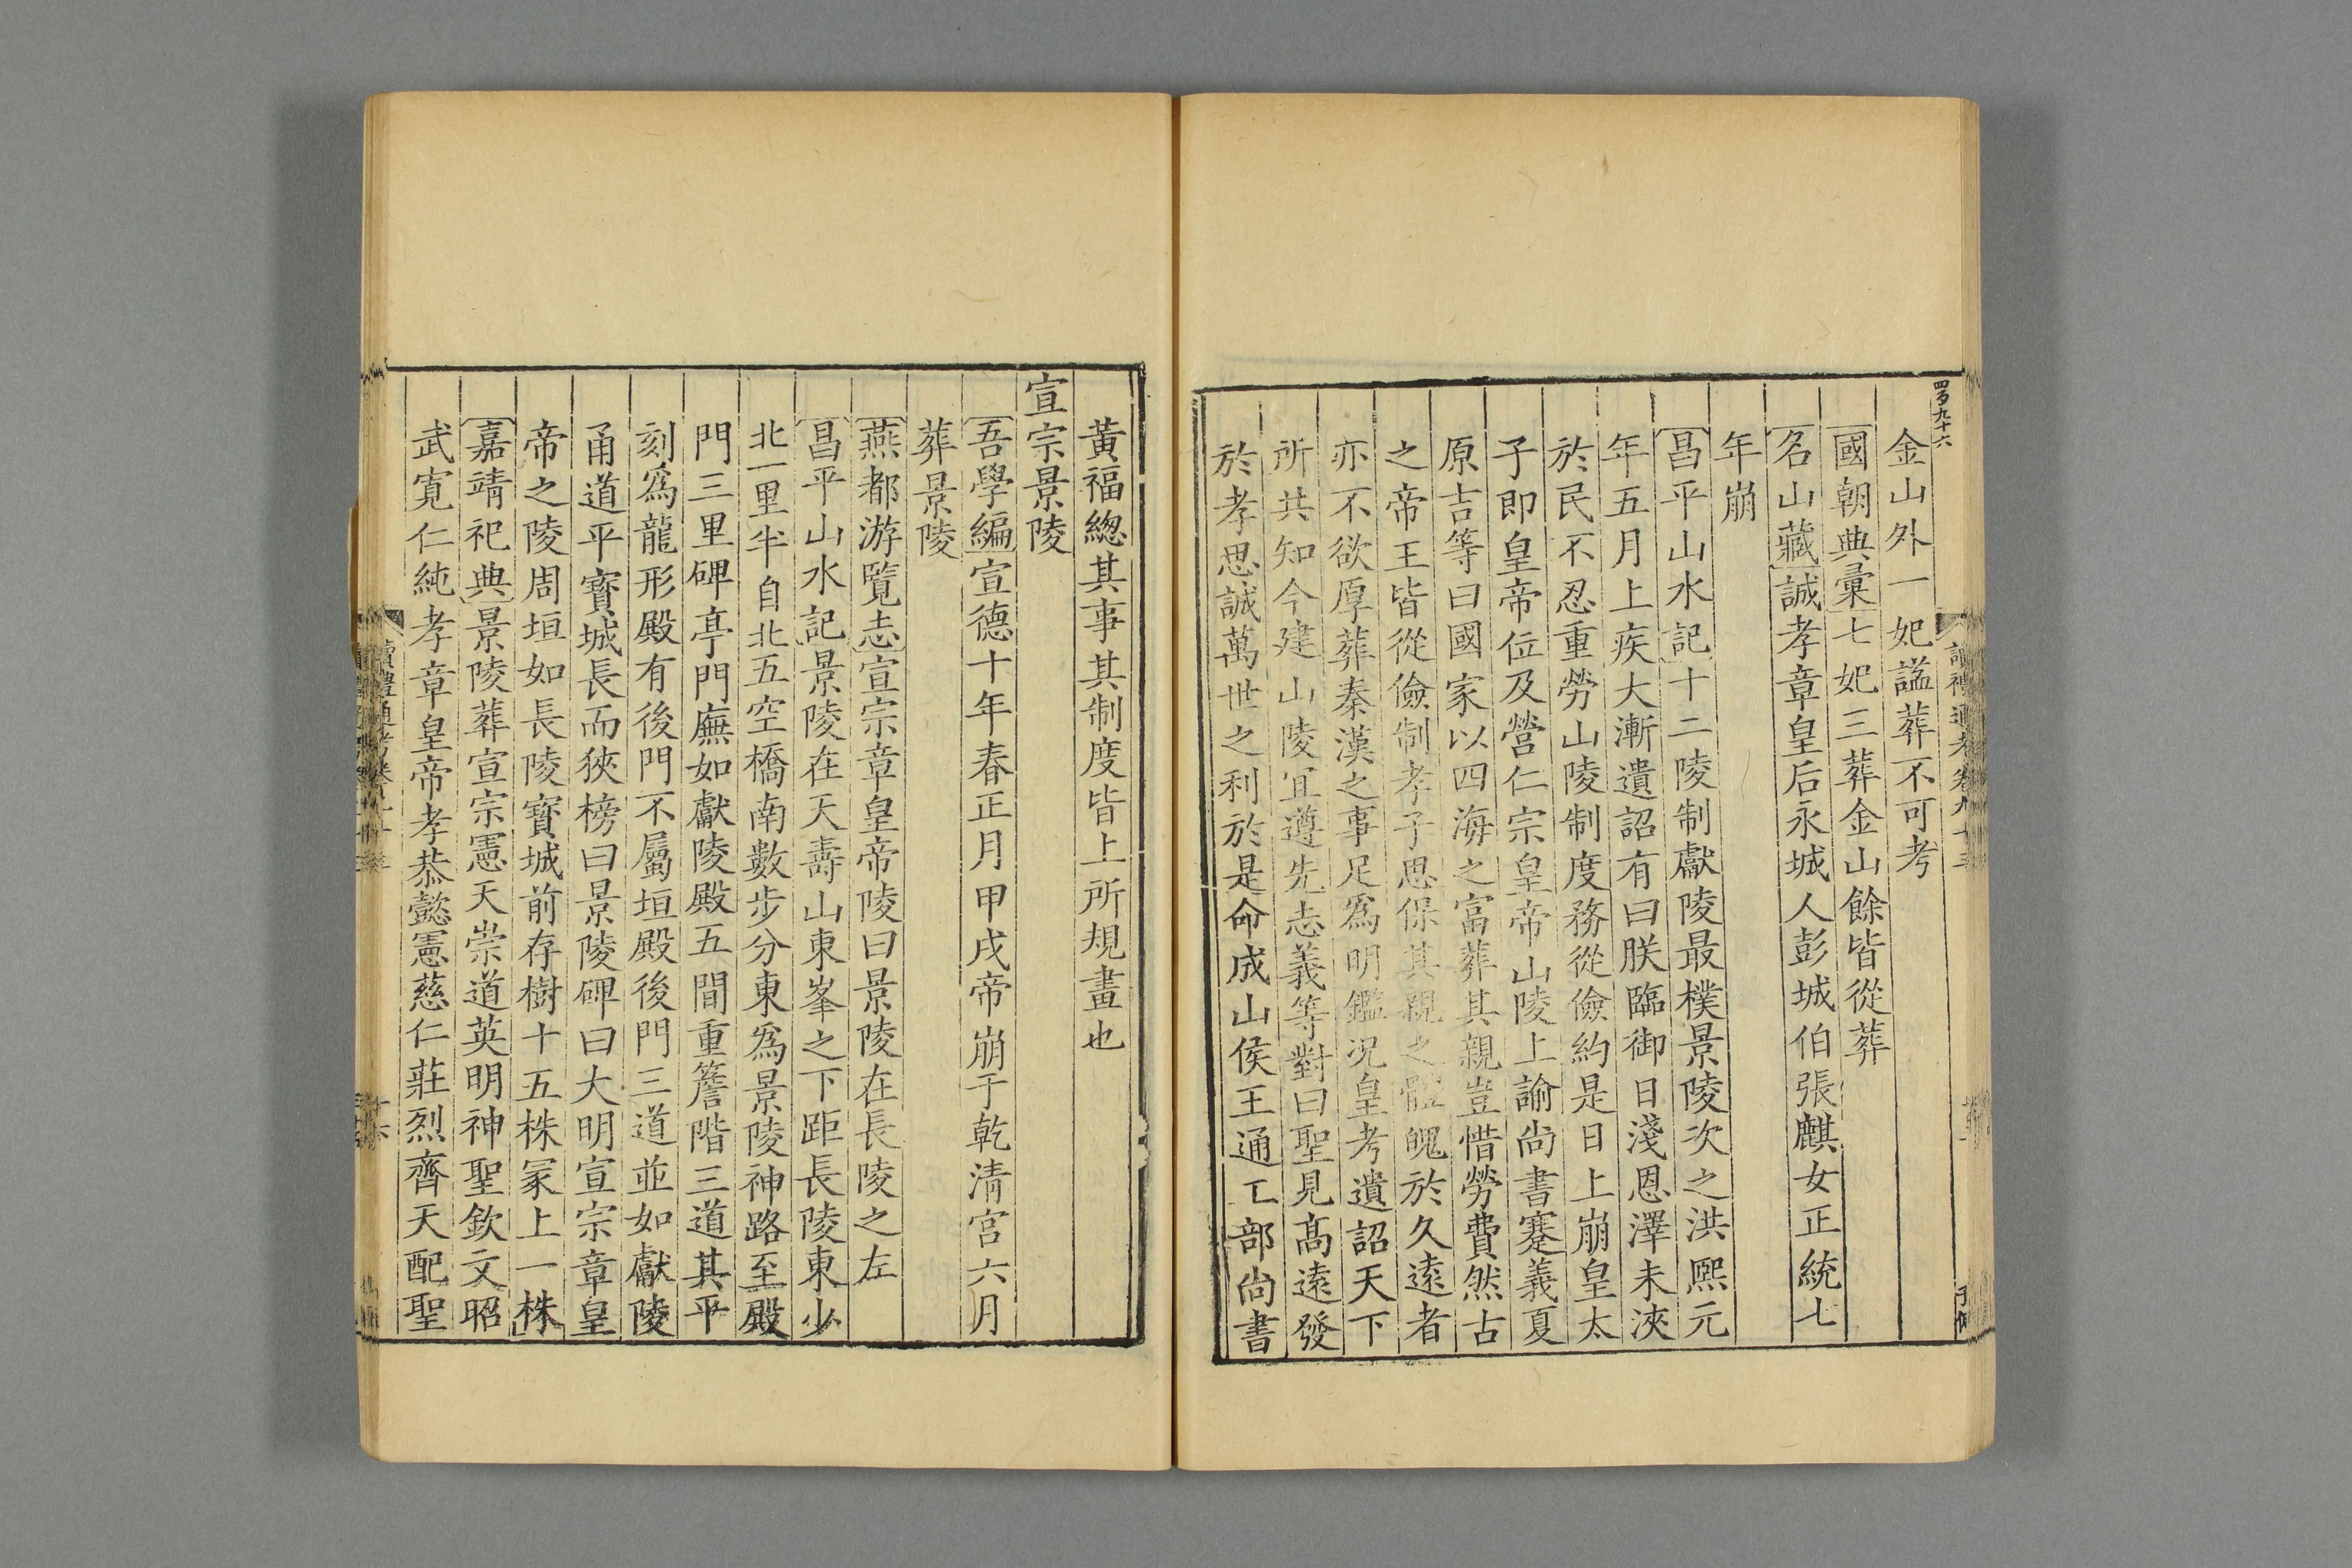 四百九十六
金山外一妃諡葬不可考
國朝典彙七妃三葬金山餘皆從葬
名山藏誠孝章皇后永城人彭城伯張麒女正統七
年崩
昌平山水記十二陵制獻陵最樸景陵次之洪熙元
年五月上疾大漸遺詔有曰朕臨御日淺恩澤未浹
於民不忍重勞山陵制度務從儉約是日上崩皇太
子即皇帝位及營仁宗皇帝山陵上諭尚書蹇義夏
原吉等曰國家以四海之富葬其親豈惜勞費然古
之帝王皆從儉制孝子思保其親之體魄於久遠者
亦不欲厚葬秦漢之事足爲明鑑况皇考遺詔天下
所共知今建山陵宜遵先志義等對曰聖見高遠發
於孝思誠萬世之利於是命成山侯王通工部尚書
黃福總其事其制度皆上所規畫也
宣宗景陵
吾學編宣德十年春正月甲戌帝崩于乾清宮六月
葬景陵
燕都游覽志宣宗章皇帝陵曰景陵在長陵之左
昌平山水記景陵在天壽山東峯之下距長陵東少
北一里半自北五空橋南數步分東爲景陵神路至殿
門三里碑亭門廡如獻陵殿五間重簷階三道其平
刻爲龍形殿有後門不屬垣殿後門三道並如獻陵
甬道平寳城長而狹榜曰景陵碑曰大明宣宗章皇
帝之陵周垣如長陵寳城前存樹十五株冢上一株
嘉靖祀典景陵葬宣宗憲天崇道英明神聖欽文昭
武寬仁純孝章皇帝孝恭懿憲慈仁莊烈齊天配聖